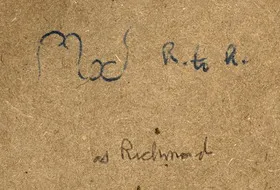 R. to R.
as Richmond